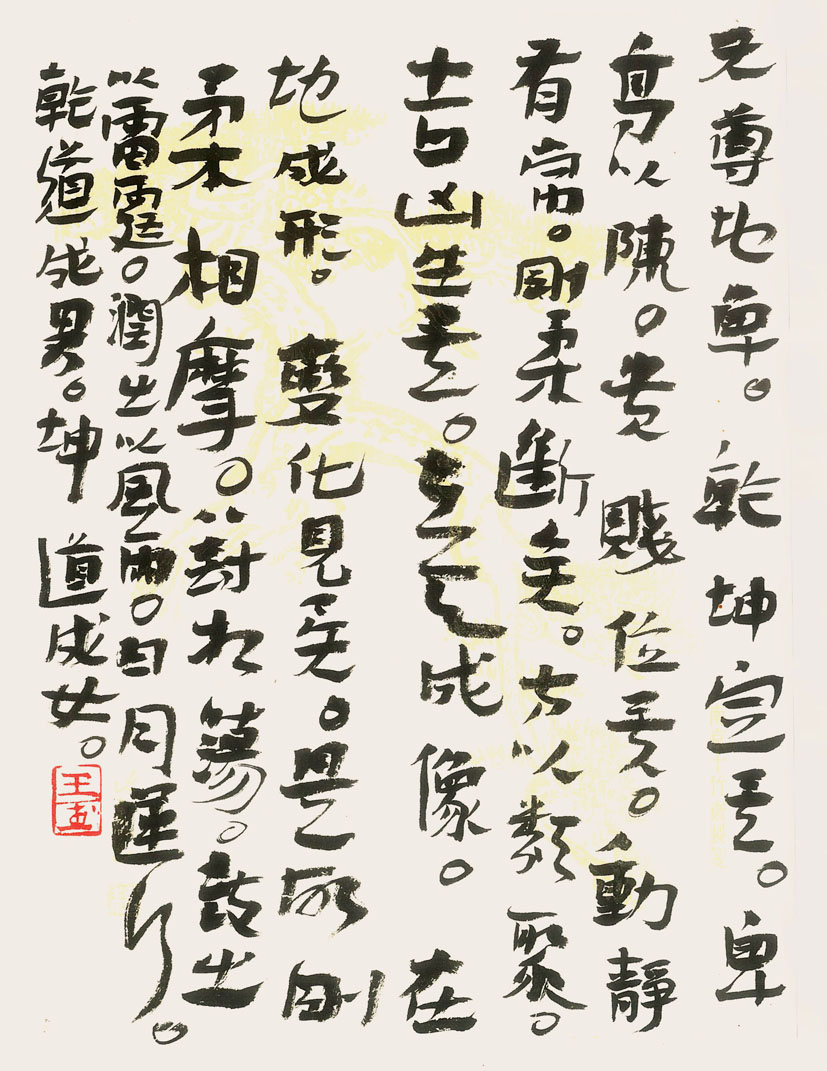 天尊地卑。乾坤定矣。卑
高以陳。貴賤位矣。動靜
有常。剛柔斷矣。方以類聚。
吉凶生矣。在天成像。在
地成形。變化見矣。是故剛
柔相摩。八卦相蕩。鼓之
以雷霆。潤之以風雨。日月運行。
乾道成男。坤道成女。